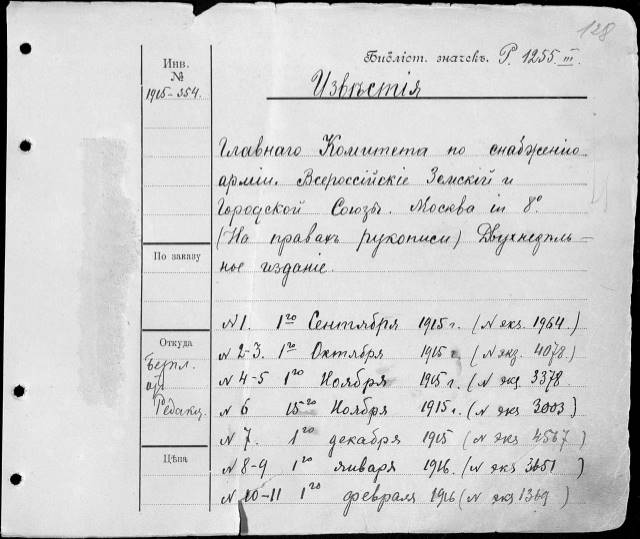 128
Библіот. значекъ. P. 1255. III.
Извѣстія
Инв.
№
1915-354.
Главнаго Комитета по снабженію
арміи. Всероссійскіе Земскій и
Городской Союзы. Москва in 8°.
(На правахъ рукописи) Двухнедѣль-
ное изданіе.
По заказу
Откуда
Безпл.
Редакц.
Цѣна
N 1. 1го Сентября 1915 г. (N экз. 1964.)
N 2-3. 1го Октября 1915 г. (N экз. 4078.)
N 4-5 1го Ноября 1915 г. (N экз 3378.
N 6 15го Ноября 1915 г. (N экз 3003)
N 7. 1го декабря 1915 (N экз 4567)
N 8-9 1го января 1916. (N экз 3651)
N 10-11 1го февраля 1916 (N экз 1369)